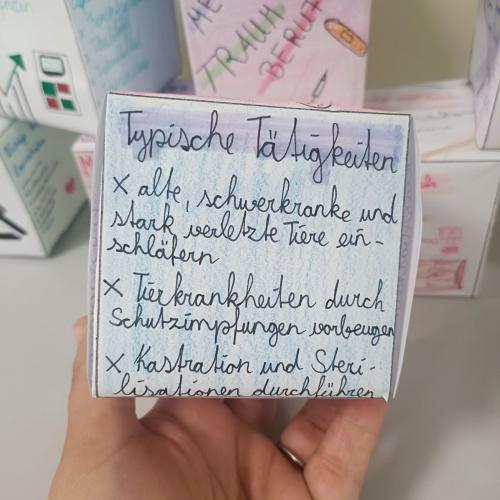 ME
TRAUM
BERUF
Typische Tätigkeiten
X alte, schwerkranke und
stark verletzte Tiere ein-
schläfern
X Tierkrankheiten durch
Schutzimpfungen vorbeugen
X Kastration und Steri-
lisationen durchführen